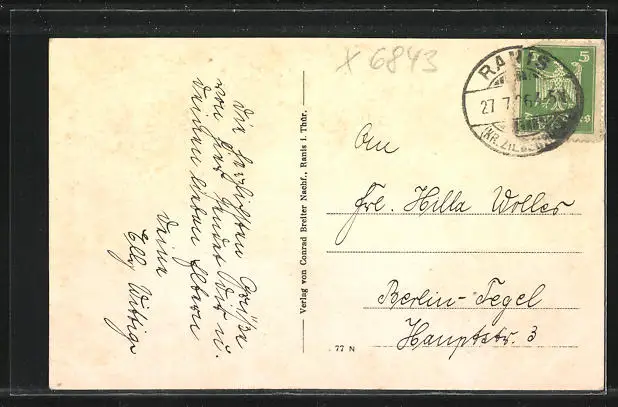 Die herzlichsten Grüße
von hier sendet Dir u.
Deinen lieben Eltern
Deine
Elly Wittige
Verlag von Conrad Breiter Nachf., Ranis i. Thür.
77 N
X 6843
RANIS
27.7.26
(KR. ZIEGENRÜCK)
5
An
Frl. Hilla Wolles
Berlin-Tegel
Hauptstr. 3